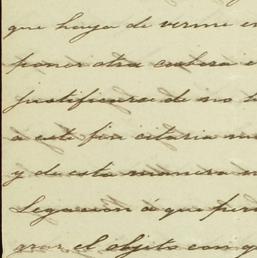 que haya de verme en
poner otra cubierta
justificarse de no
a este fin citaria
y de esta manera
Legacion á que
grar el objeto con